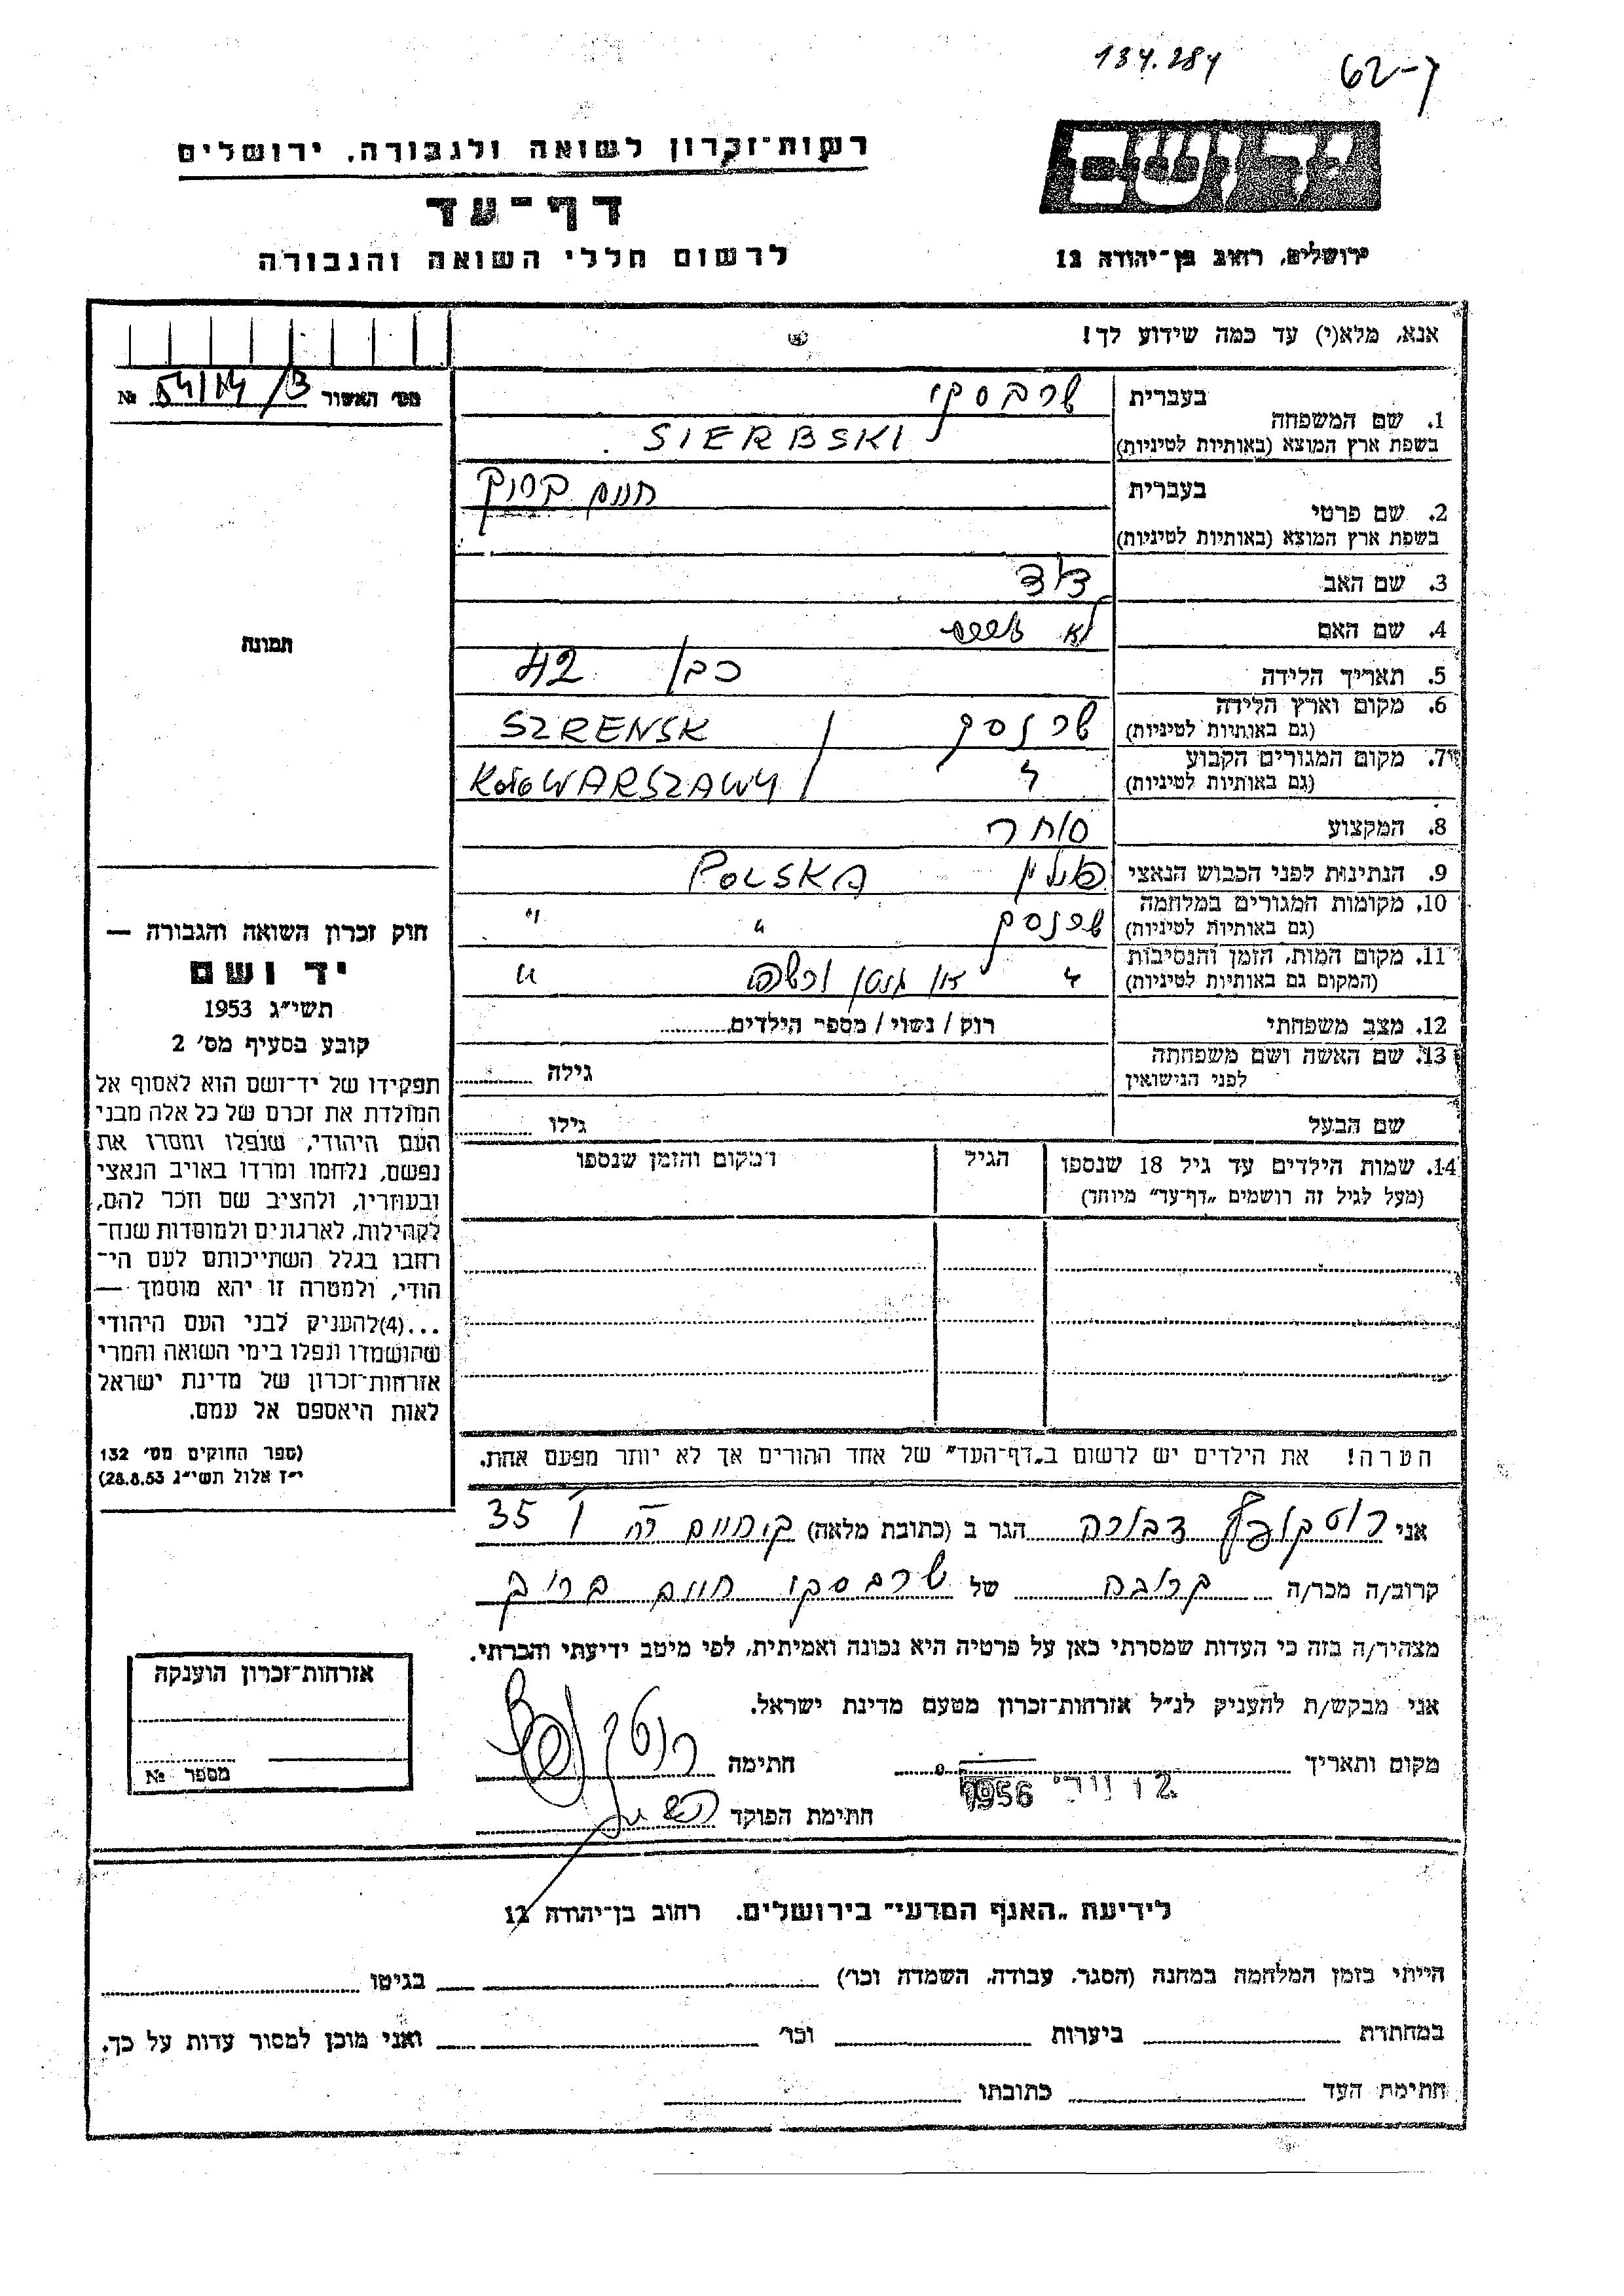 134.284
62-7
רשות־זכרון לשואה ולגבורה, ירושלים
יד ושם
דף־עד
לרשום חללי השואה והגבורה
ירושלים, רחוב בן־יהודה 12
אנא, מלא(י) עד כמה שידוע לך!
מס׳ האשור №
1. שם המשפחה
בעברית שרבסקי
בשפת ארץ המוצא (באותיות לטיניות) SIERBSKI
2. שם פרטי
בעברית חיים ברוך
בשפת ארץ המוצא (באותיות לטיניות)
3. שם האב דוד
4. שם האם לא
5. תאריך הלידה כבן 42
6. מקום וארץ הלידה שרנסק / SZRENSK
(גם באותיות לטיניות)
7. מקום המגורים הקבוע " KOŁO WARSZAWY /
(גם באותיות לטיניות)
8. המקצוע סוחר
9. הנתינות לפני הכבוש הנאצי פולין POLSKA
10. מקומות המגורים במלחמה שרנסק " "
(גם באותיות לטיניות)
11. מקום המות, הזמן והנסיבות " "
(המקום גם באותיות לטיניות)
12. מצב משפחתי רוק / נשוי / מספר הילדים
13. שם האשה ושם משפחתה
לפני הנישואין גילה
שם הבעל גילו
14. שמות הילדים עד גיל 18 שנספו הגיל ומקום והזמן שנספו
(מעל לגיל זה רושמים „דף־עד״ מיוחד)
הערה! את הילדים יש לרשום ב„דף־העד״ של אחד ההורים אך לא יותר מפעם אחת.
תמונה
חוק זכרון השואה והגבורה —
יד ושם
תשי״ג 1953
קובע בסעיף מס׳ 2
תפקידו של יד־ושם הוא לאסוף אל
המולדת את זכרם של כל אלה מבני
העם היהודי, שנפלו ומסרו את
נפשם, נלחמו ומרדו באויב הנאצי
ובעוזריו, ולהציב שם וזכר להם,
לקהילות, לארגונים ולמוסדות שנח־
רחבו בגלל השתייכותם לעם הי־
הודי, ולמטרה זו יהא מוסמך —
...(4)להעניק לבני העם היהודי
שהושמדו ונפלו בימי השואה והמרי
אזרחות־זכרון של מדינת ישראל
לאות היאספם אל עמם.
(ספר החוקים מס׳ 132
י״ז אלול תשי״ג 28.8.53)
אני רוטקופף דבורה הגר ב (כתובת מלאה) קרית חיים 35
קרוב/ה מכר/ה קרובה של שרבסקי חיים ברוך
מצהיר/ה בזה כי העדות שמסרתי כאן על פרטיה היא נכונה ואמיתית, לפי מיטב ידיעתי והכרתי.
אני מבקש/ת להעניק לנ״ל אזרחות־זכרון מטעם מדינת ישראל.
מקום ותאריך 1956 חתימה
חתימת הפוקד
אזרחות־זכרון הוענקה
מספר №
לידיעת „האגף המדעי״ בירושלים. רחוב בן־יהודה 12
הייתי בזמן המלחמה במחנה (הסגר, עבודה, השמדה וכו׳) בגיטו
במחתרת ביערות וכו׳ ואני מוכן למסור עדות על כך.
חתימת העד כתובתו